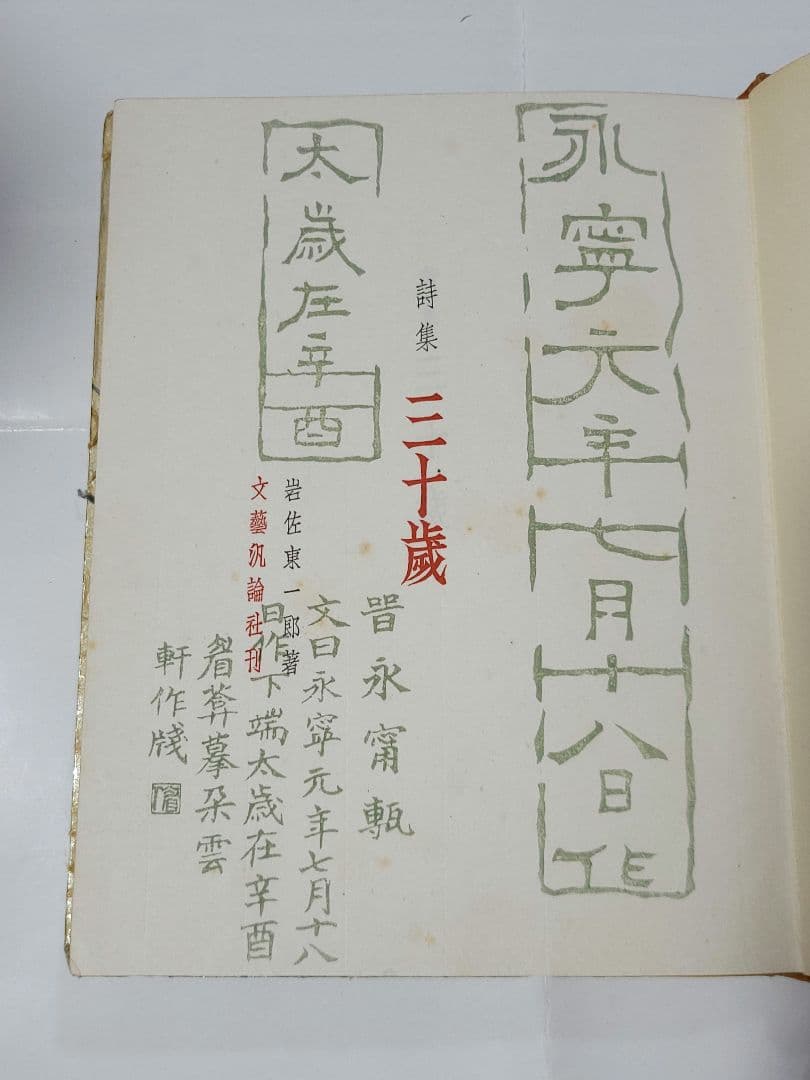 永寧元年七月十八日作
詩集
三十歲
太歲在辛酉
岩佐東一郎著
文藝汎論社刊
晉永甯甎
文曰永寧元年七月十八
日作下端太歲在辛酉
眉葊摹朵雲
軒作牋